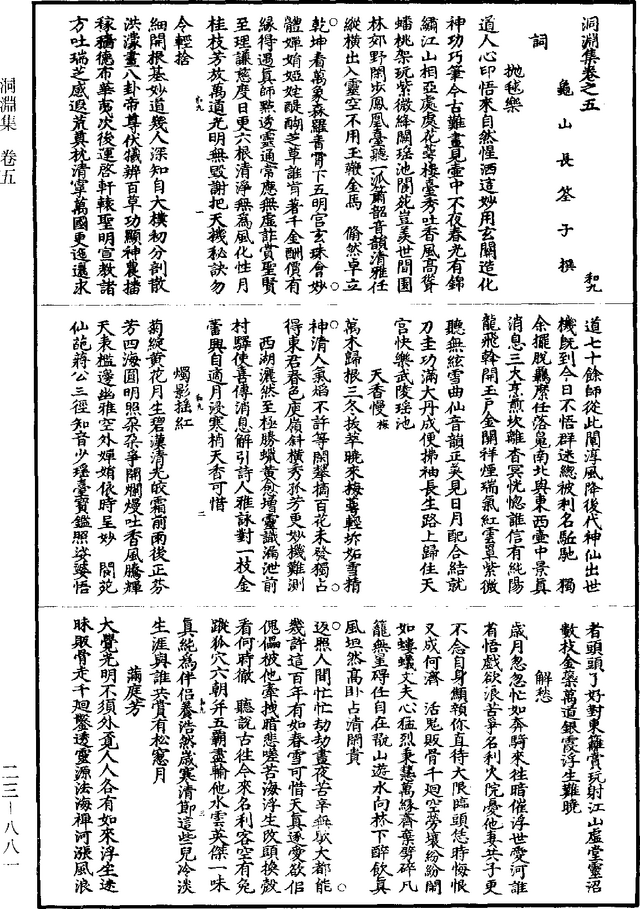 洞淵集卷之五
龜山長筌子撰
和九
詞
拋毬樂
道人心印悟來自然惺洒這妙用玄關造化
神功巧筆今古難畫見壺中不夜春光有錦
繡江山相亞處處花鶯樓臺秀吐香風高聳
蟠桃架玩紫微絳闕瑶池閬苑豈羡世間園
林郊野閑步鳳凰臺聽一派簫韶音韻清雅任
縱橫出入靈空不用玉鞭金馬 翛然卓立
乾坤看萬象森羅青霄下五明宫玄珠會妙
體嬋娟姹醍醐芝草誰肯著千金酬價有
緣得遇真師點透靈通常應無虚詐賞聖賢
至理讓慈度日更六根清淨無為風化性月
桂枝芳放萬道光明無毁謝把天機秘訣勿
令輕捨
細開根基妙道幾人深知自大樸初分剖散
洪濛畫八卦帝尊伏犧辨百草功顯神農播
稼穡德布華夷次後運啓軒轅聖明宣教諸
方吐瑞芝感遐荒奠枕清寧萬國更迤邐求
道七十餘師從此闡淳風降後代神仙出世
機既到今日不悟群迷總被利名駈馳 獨
余擺脱羈縻任落㝠南北與東西壺中景真
消息三大烹煎坎離杳冥恍惚誰信有純陽
龍飛幹開玉户金關祥煙瑞氣紅雲罩紫微
聽無絃雪曲仙音韻正美見日月配合結就
刀圭功滿大丹成便拂袖長生路上歸住天
宫快樂武陵瑶池
天香慢
萬木歸根三冬拔萃曉來梅蕚輕坼妬雪精
神清人氣焰不許等閑攀摘百花未發獨占
得東君春色庾嶺斜横秀孤芳更妙機難測
西湖灑然至極勝蠟黄愈增靈識漏泄前
村驛使喜傳消息解引詩人雅詠對一枝金
蕾興自適月浸寒梢天香可惜
燭影摇紅
菊綻黄花月生碧漢清光皎霜前雨後正芬
芳四海圓明照朶朶爭開爛熳吐香風騰輝
天表檻邊幽雅空外嬋娟依時呈妙 閬苑
仙葩蔣公三徑知音少瑶臺寳鑑照娑婆悟
者頭頭了好對東籬賞玩射江山虚堂靈沼
數枝金蘂萬道銀霞浮生難曉
解愁
歲月忽忽忙如奔騎來往暗催浮世愛河誰
肯悟戲欲浪苦爭名利火院憂他妻共子更
不念自身顦顇你直待大限臨頭恁時悔恨
又成何濟 活鬼販骨千廻空勞攘紛紛閙
如螻蟻丈夫心猛烈秉慧萬緣齊棄劈碎凡
籠無罣碍任自在翫山遊水向林下醉飲真
風坦然高卧占清閑貴
返照人間忙忙劫劫晝夜苦辛無歇大都能
幾許這百年有如春雪可惜天真逐愛欲侣
傀儡被他牽拽暗悲嗟苦海浮生改頭換殼
看何時徹 聽説古往今來名利客空有兔
蹤狐穴六朝并五霸盡輸他水雲英傑一味
真純為伴侣養浩然歲寒清節這些兒冷淡
生涯與誰共賞有松窻月
滿庭芳
大覺光明不須外覓人人各有如來浮生迷
昧販骨走千廻鑿透靈源法海禪河漲風浪
洞淵集 卷五
二三—八八一